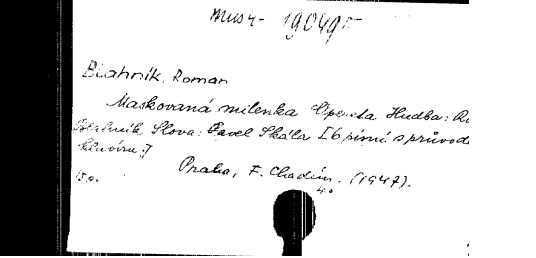 Mus 4 - 19049
Blahník, Roman
Maskovaná milenka Opereta Hudba: R
Blahník Slova: Pavel Skála [6 písní s průvode
klavíru.]
Praha, F. Chadim. (1947).
15.
4°